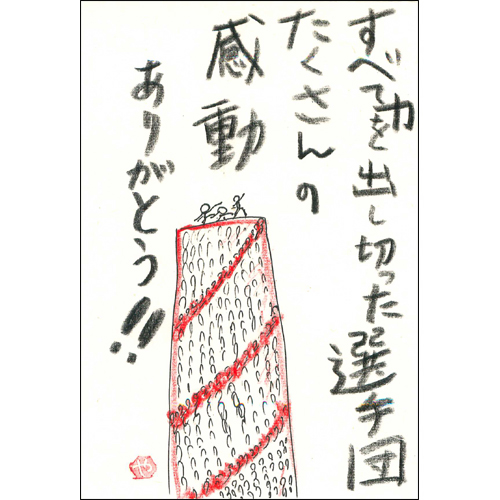 すべて力を出し切った選手団
たくさんの
感動
ありがとう!!